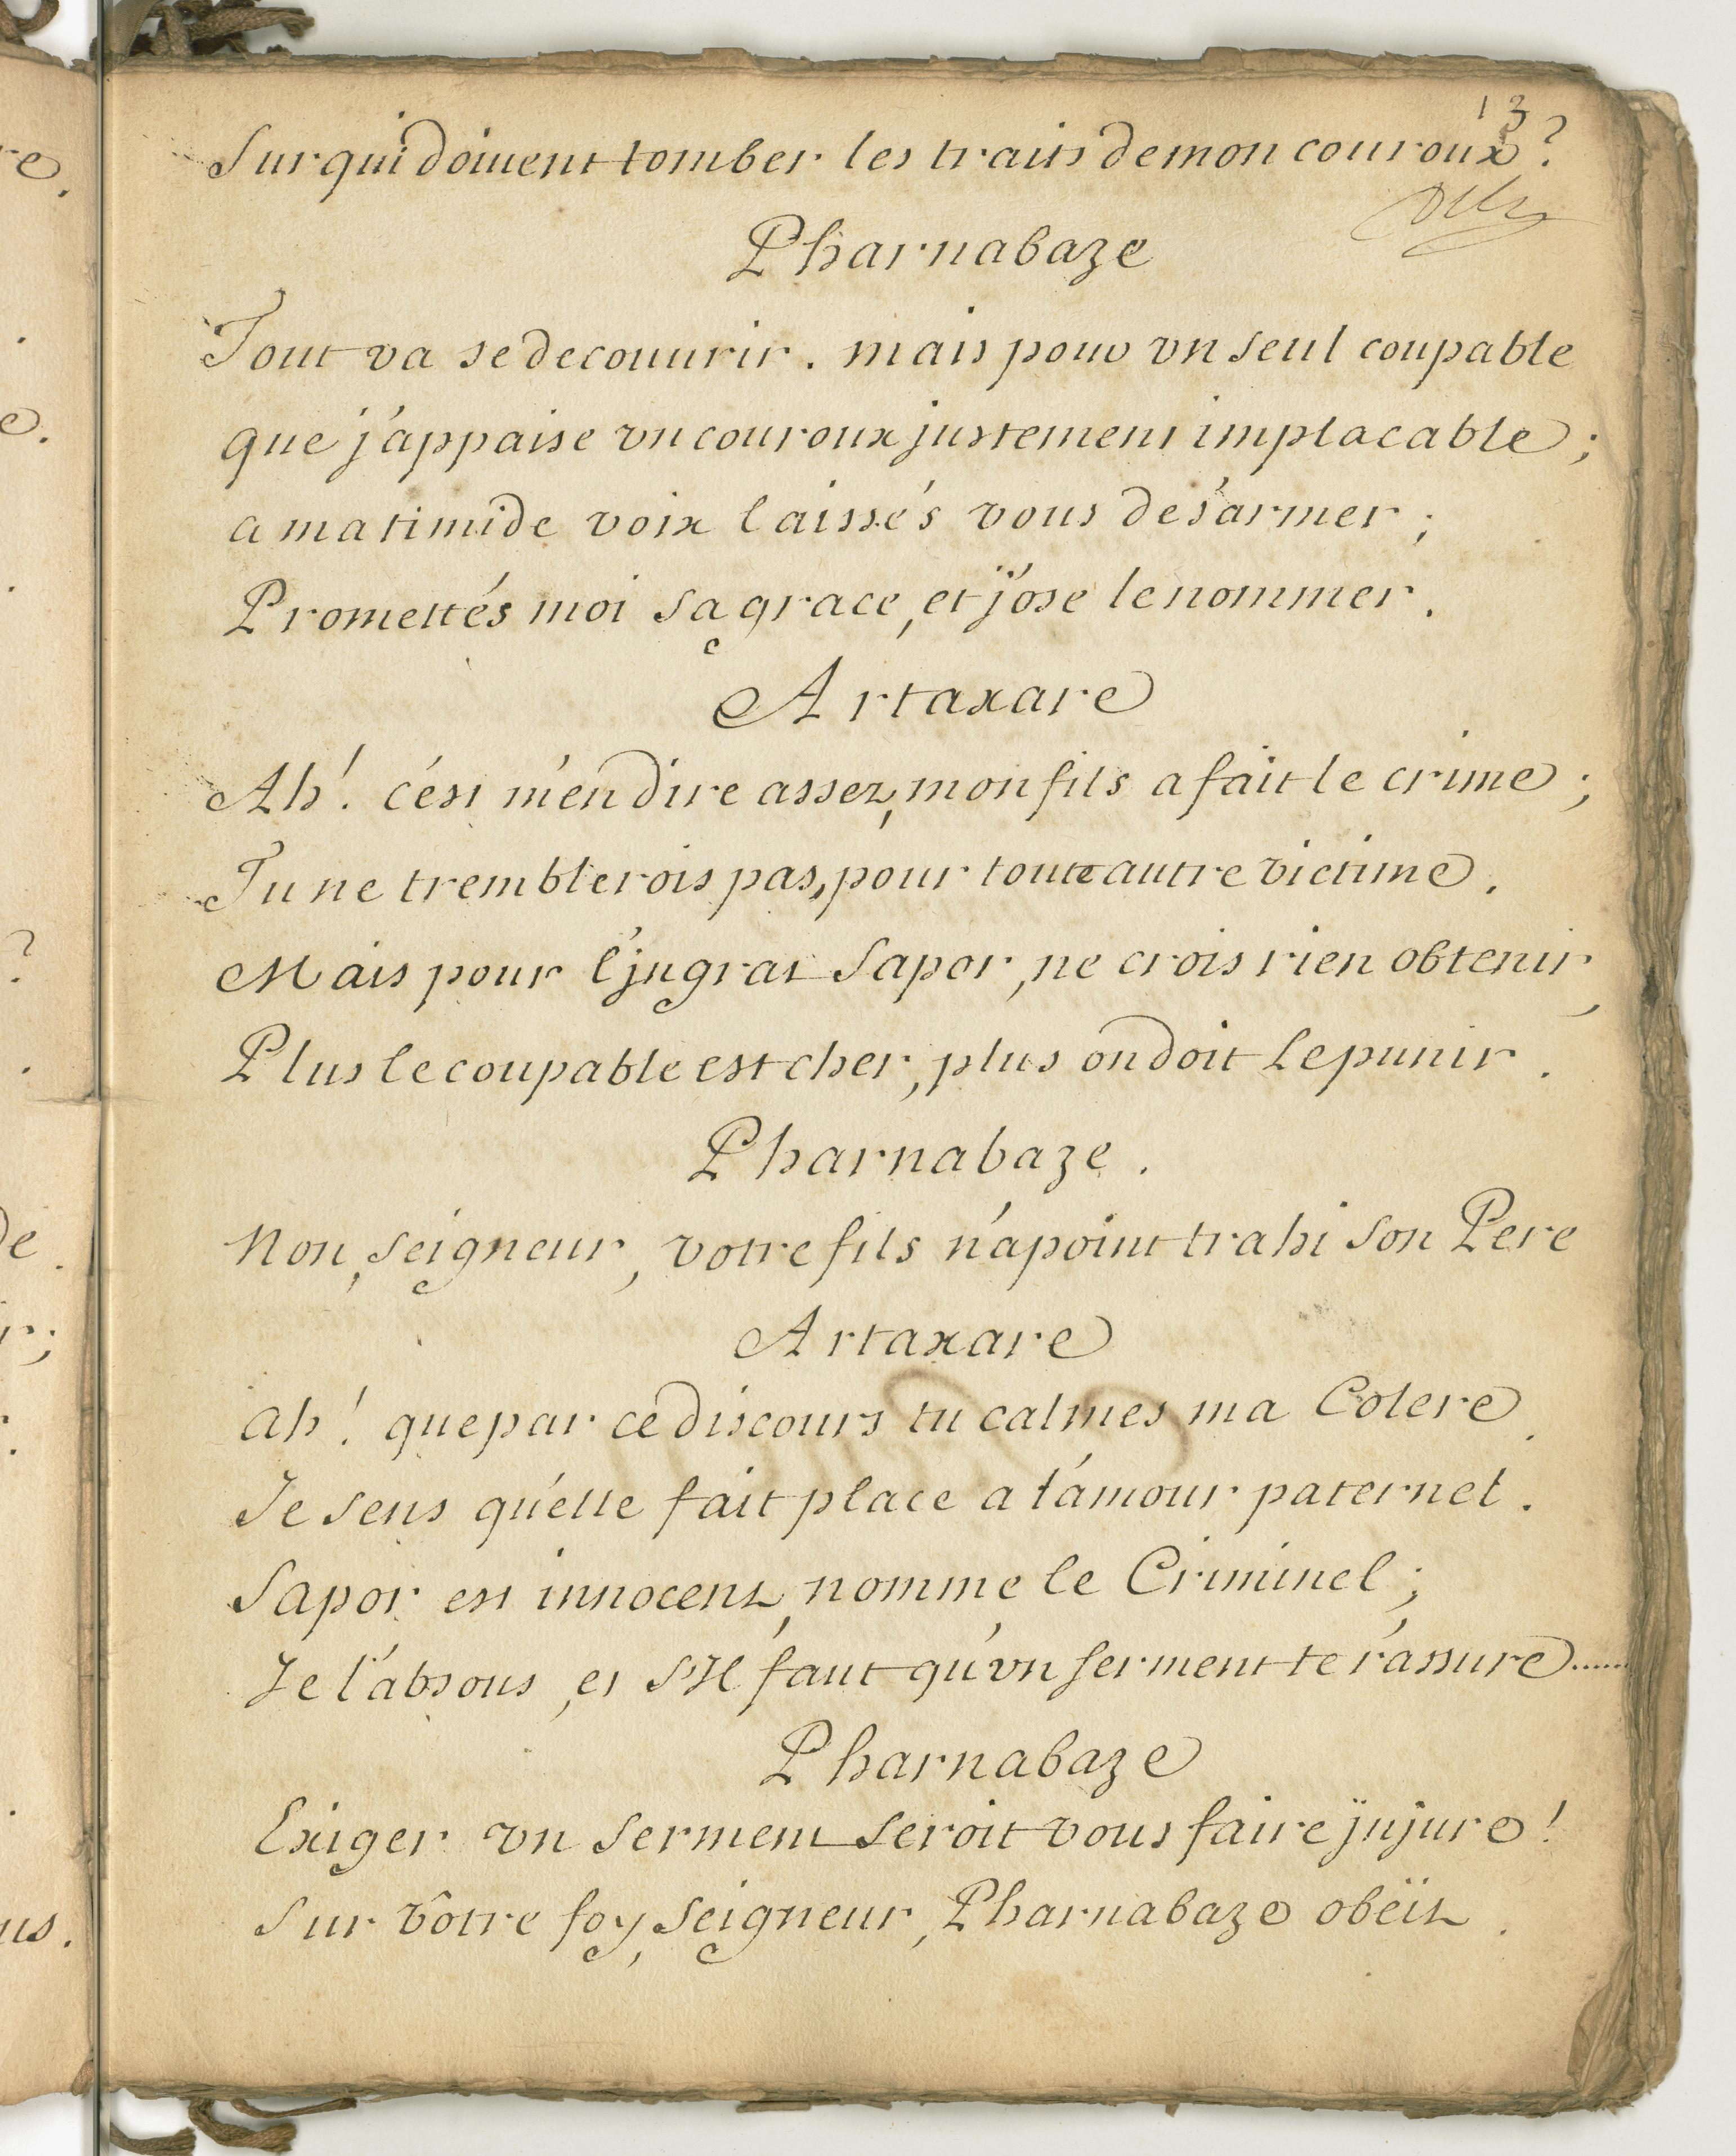 13
Sur qui doiuent tomber les traits de mon couroux ?
Pharnabaze
Tout va se decouurir . mais pour vn seul coupable
que j'appaise vn couroux justement implacable ;
a ma timide voix laissés vous des'armer ;
Promettés moi sa grace, et j'ose le nommer .
Artaxare
Ah ! c'est m'en dire assez, mon fils a fait le crime ;
Tu ne tremblerois pas, pour toute autre victime .
Mais pour l'jngrat Sapor, ne crois rien obtenir,
Plus le coupable est cher, plus on doit le punir .
Pharnabaze .
Non, seigneur, votre fils n'a point trahi son Pere
Artaxare
ah ! que par ce discours tu calmes ma Colere .
Je sens qu'elle fait place a l'amour paternel .
Sapor est innocent, nomme le Criminel ;
Je l'absous, et s'Il faut qu'vn serment te r'assure......
Pharnabaze
Exiger vn serment seroit vous faire jnjure !
Sur vôtre foy, seigneur, Pharnabaze obëit .